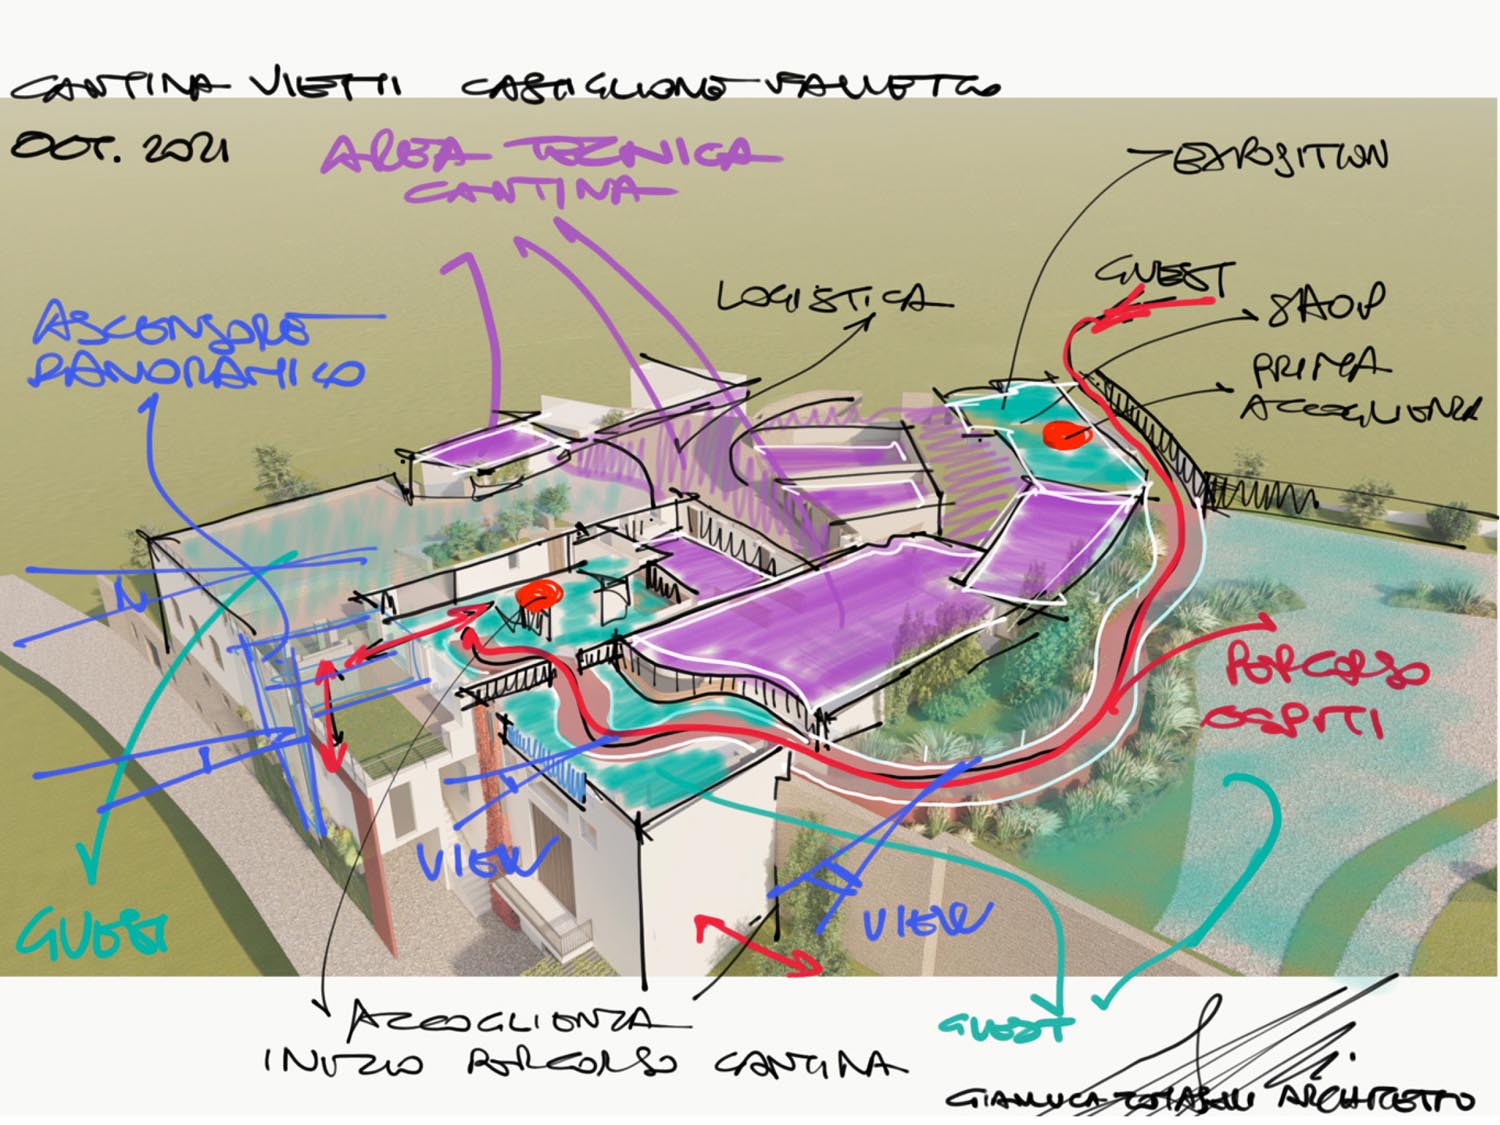 CANTINA VIETTI CASTIGLIONE FALLETTO
OCT. 2021
AREA TECNICA
CANTINA
EXPOSITION
GUEST
SHOP
PRIMA
ACCOGLIENZA
LOGISTICA
ASCENSORE
PANORAMICO
PERCORSO
OSPITI
VIEW
VIEW
GUEST
GUEST
ACCOGLIENZA
INIZIO PERCORSO CANTINA
GIANLUCA ARCHITETTO